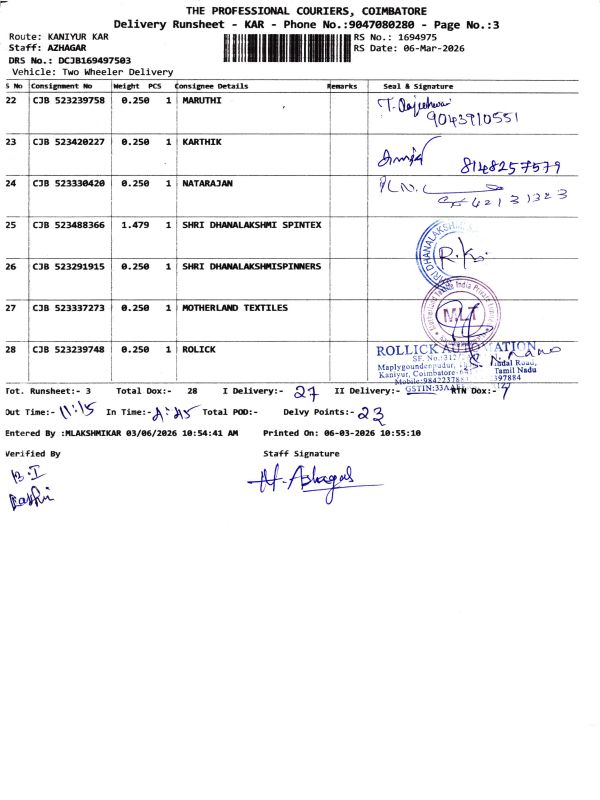 THE PROFESSIONAL COURIERS, COIMBATORE
Delivery Runsheet - KAR - Phone No.:9047080280 - Page No.:3
Route: KANIYUR KAR
RS No.: 1694975
Staff: AZHAGAR
RS Date: 06-Mar-2026
DRS No.: DCJB169497503
Vehicle: Two Wheeler Delivery
S No Consignment No Weight PCS Consignee Details Remarks Seal & Signature
22 CJB 523239758 0.250 1 MARUTHI
9043910551
23 CJB 523420227 0.250 1 KARTHIK
8148257579
24 CJB 523330420 0.250 1 NATARAJAN
25 CJB 523488366 1.479 1 SHRI DHANALAKSHMI SPINTEX
26 CJB 523291915 0.250 1 SHRI DHANALAKSHMISPINNERS
27 CJB 523337273 0.250 1 MOTHERLAND TEXTILES
M.L.T
28 CJB 523239748 0.250 1 ROLICK
ROLLICK AUTOMATION
Maplygoundenpudur,
Kaniyur, Coimbatore Tamil Nadu
Tot. Runsheet:- 3 Total Dox:- 28 I Delivery:- 27 II Delivery:- RTN Dox:-
Out Time:- 11:15 In Time:- Total POD:- Delvy Points:- 23
Entered By :MLAKSHMIKAR 03/06/2026 10:54:41 AM Printed On: 06-03-2026 10:55:10
Verified By Staff Signature